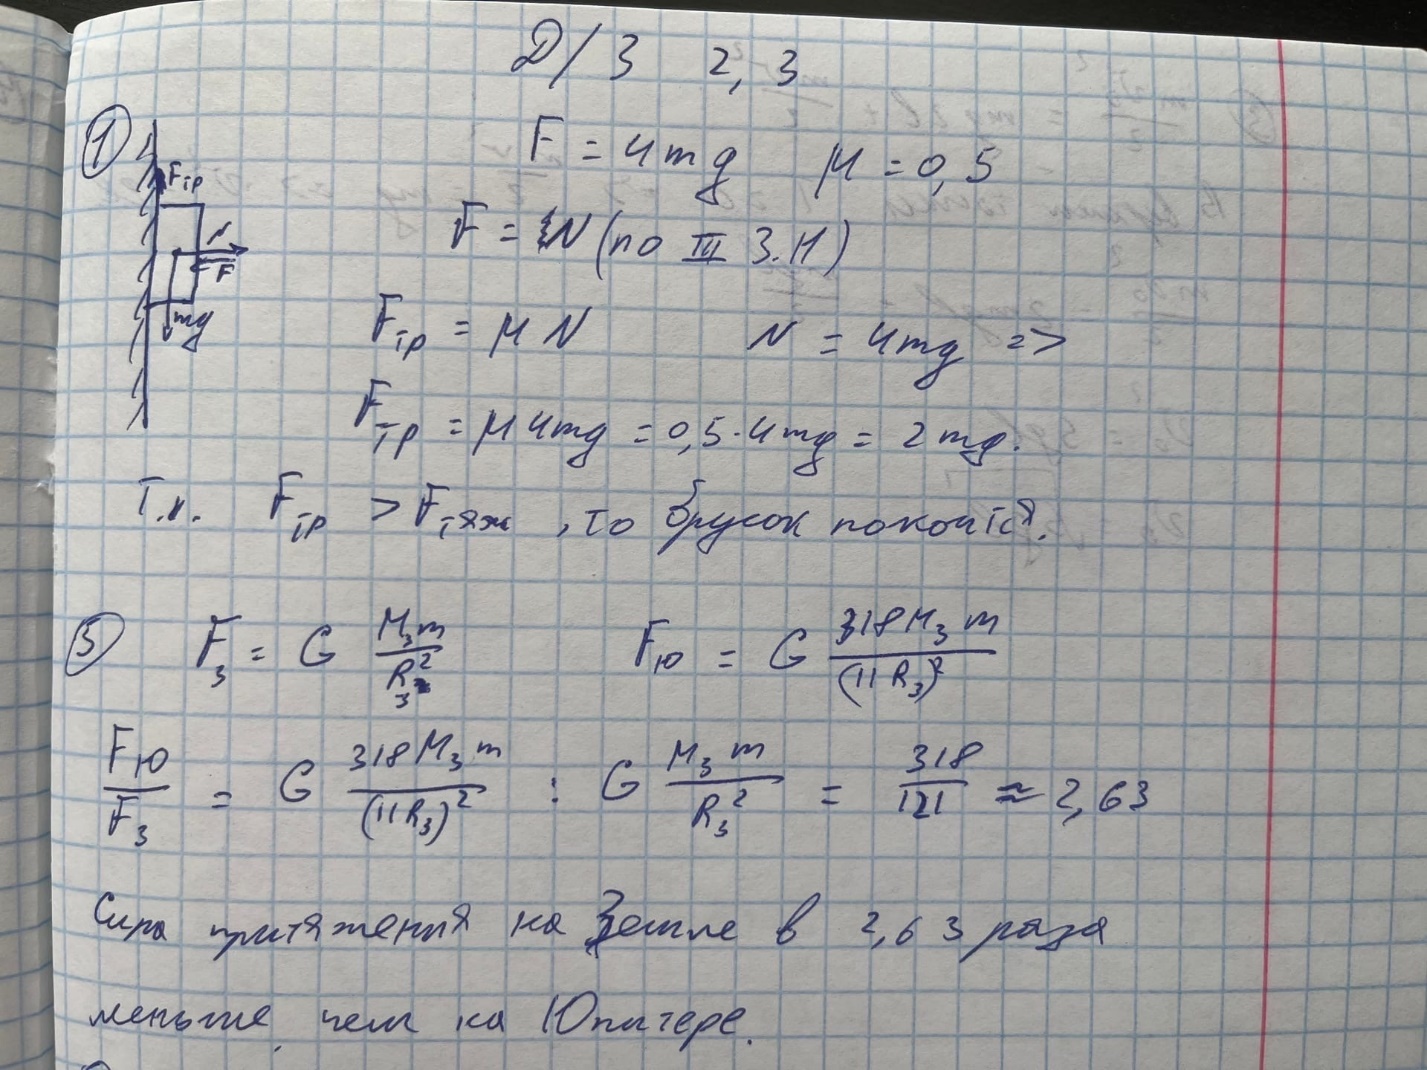 Д/З 2, 3
① F = 4mg μ = 0,5
Fтр
N
F
mg
F = N (по III З.Н)
Fтр = μN N = 4mg =>
Fтр = μ4mg = 0,5·4mg = 2mg.
Т.к. Fтр > Fтяж, то брусок покоится.
③ F₃ = G M₃m / R₃² Fю = G 318M₃m / (11R₃)²
Fю / F₃ = G 318M₃m / (11R₃)² : G M₃m / R₃² = 318 / 121 ≈ 2,63
Сила притяжения на Земле в 2,63 раза
меньше, чем на Юпитере.